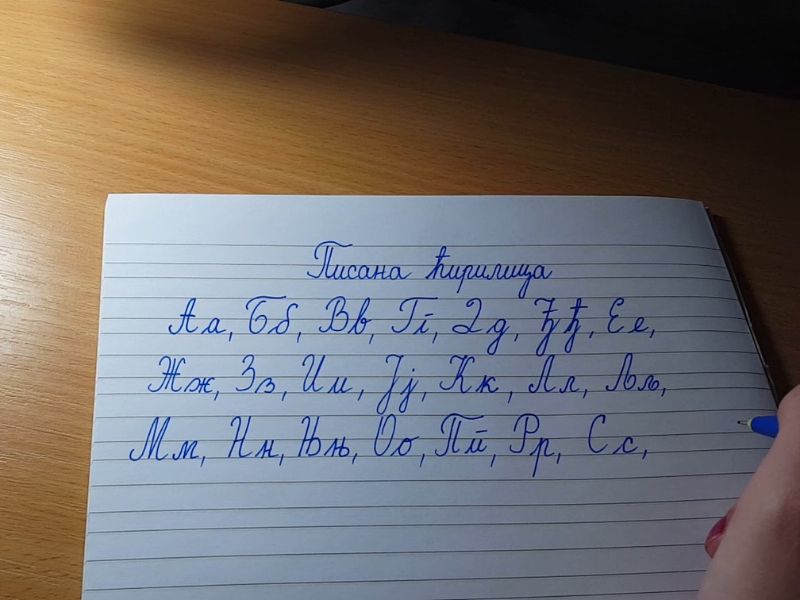 Писана ћирилица
Аа, Бб, Вв, Гг, Дд, Ђђ, Ее,
Жж, Зз, Ии, Јј, Кк, Лл, Љљ,
Мм, Нн, Њњ, Оо, Пп, Рр, Сс,